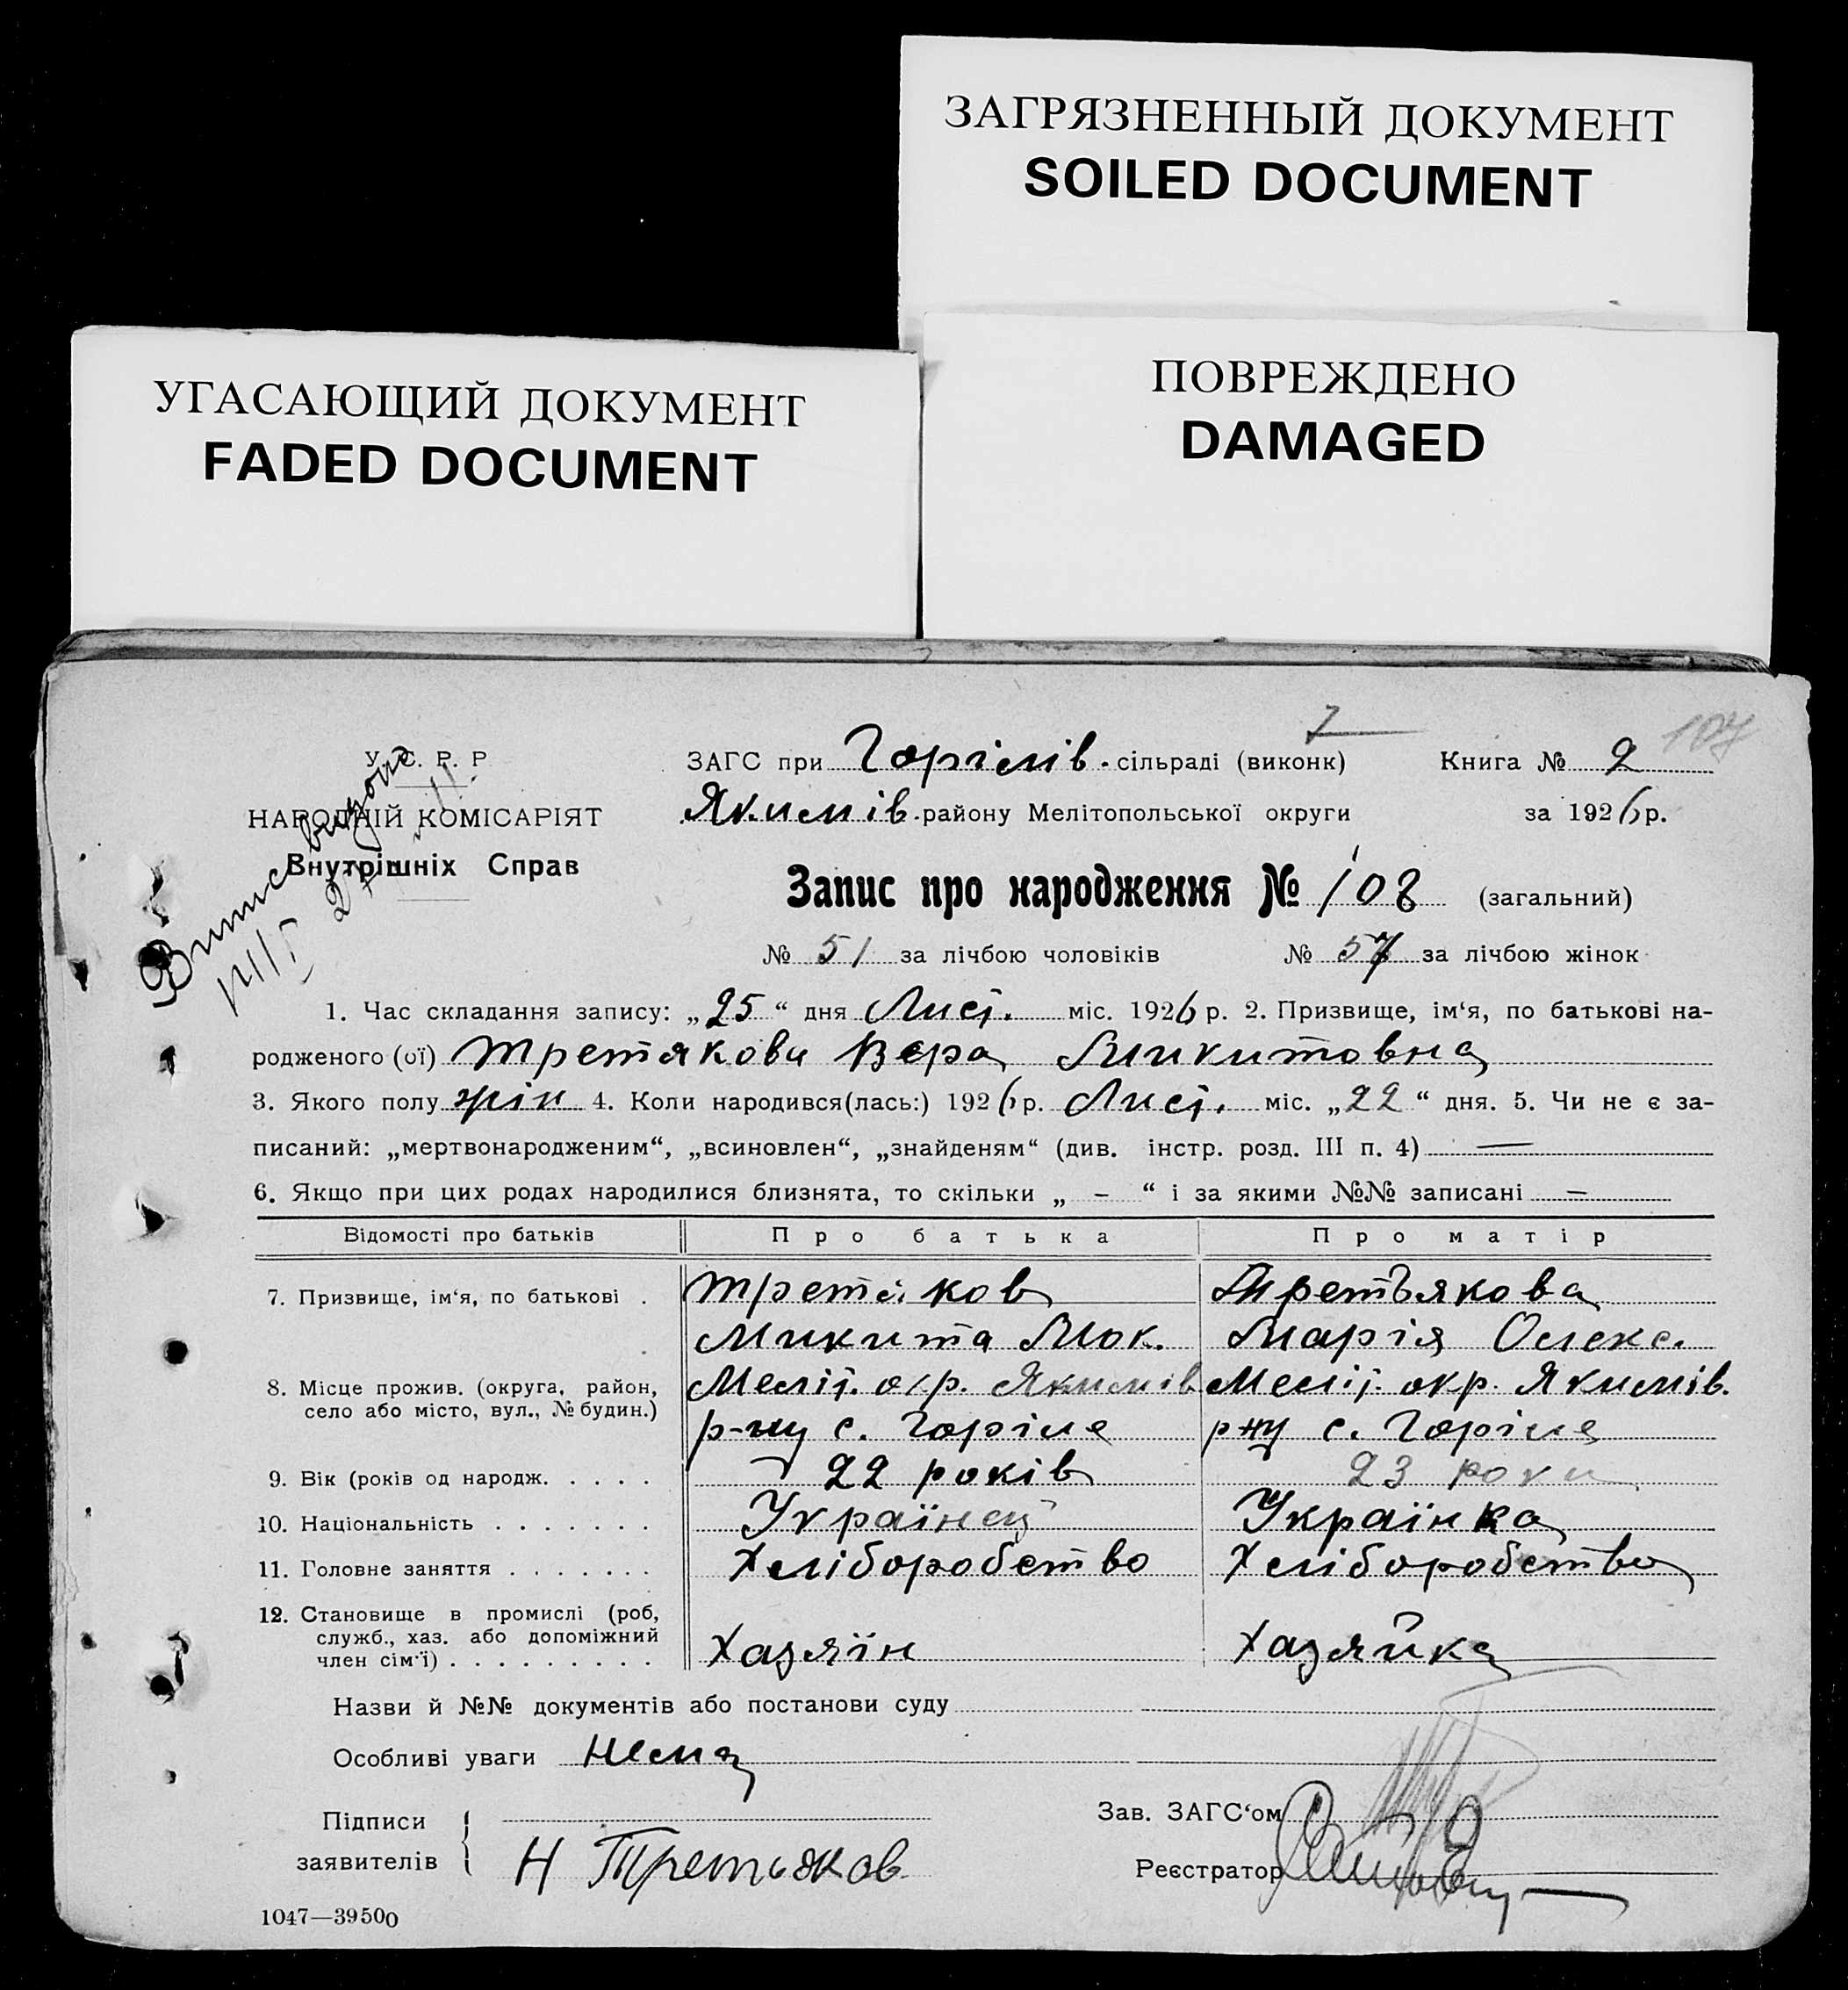 ЗАГРЯЗНЕННЫЙ ДОКУМЕНТ
SOILED DOCUMENT
УГАСАЮЩИЙ ДОКУМЕНТ
FADED DOCUMENT
ПОВРЕЖДЕНО
DAMAGED
7
107
У. С. Р. Р
НАРОДНІЙ КОМІСАРІЯТ
Внутрішніх Справ
ЗАГС при Горілів. сільраді (виконк)
Книга № 2
Якимів. району Мелітопольської округи
за 1926 р.
Запис про народження № 108 (загальний)
№ 51 за лічбою чоловіків № 57 за лічбою жінок
1. Час складання запису: „25“ дня Лист. міс. 1926 р. 2. Призвище, ім‘я, по батькові на-
родженого (ої) Третякова Вера Микитовна
3. Якого полу жін 4. Коли народився(лась:) 1926 р. Лист. міс. „22“ дня. 5. Чи не є за-
писаний: „мертвонародженим“, „всиновлен“, „знайденям“ (див. інстр. розд. III п. 4) —
6. Якщо при цих родах народилися близнята, то скільки „ - “ і за якими №№ записані —
Відомості про батьків Про батька Про матір
7. Призвище, ім‘я, по батькові . Третяков Третьякова
Микита Мок. Марія Олекс.
8. Місце прожив. (округа, район, Меліт. окр. Якимів. Меліт. окр. Якимів.
село або місто, вул., № будин.) р-ну с. Горіле р-ну с. Горіле
9. Вік (років од народж. . . . . 22 років 23 роки
10. Національність . . . . . . . Українец Українка
11. Головне заняття . . . . . . . Хліборобство Хліборобство
12. Становище в промислі (роб,
служб., хаз. або допоміжний
член сім‘ї) . . . . . . . . . Хазяїн Хазяйка
Назви й №№ документів або постанови суду
Особливі уваги Нема
Підписи
заявителів
Н Третьяков
Зав. ЗАГС‘ом
Реєстратор
1047—39500